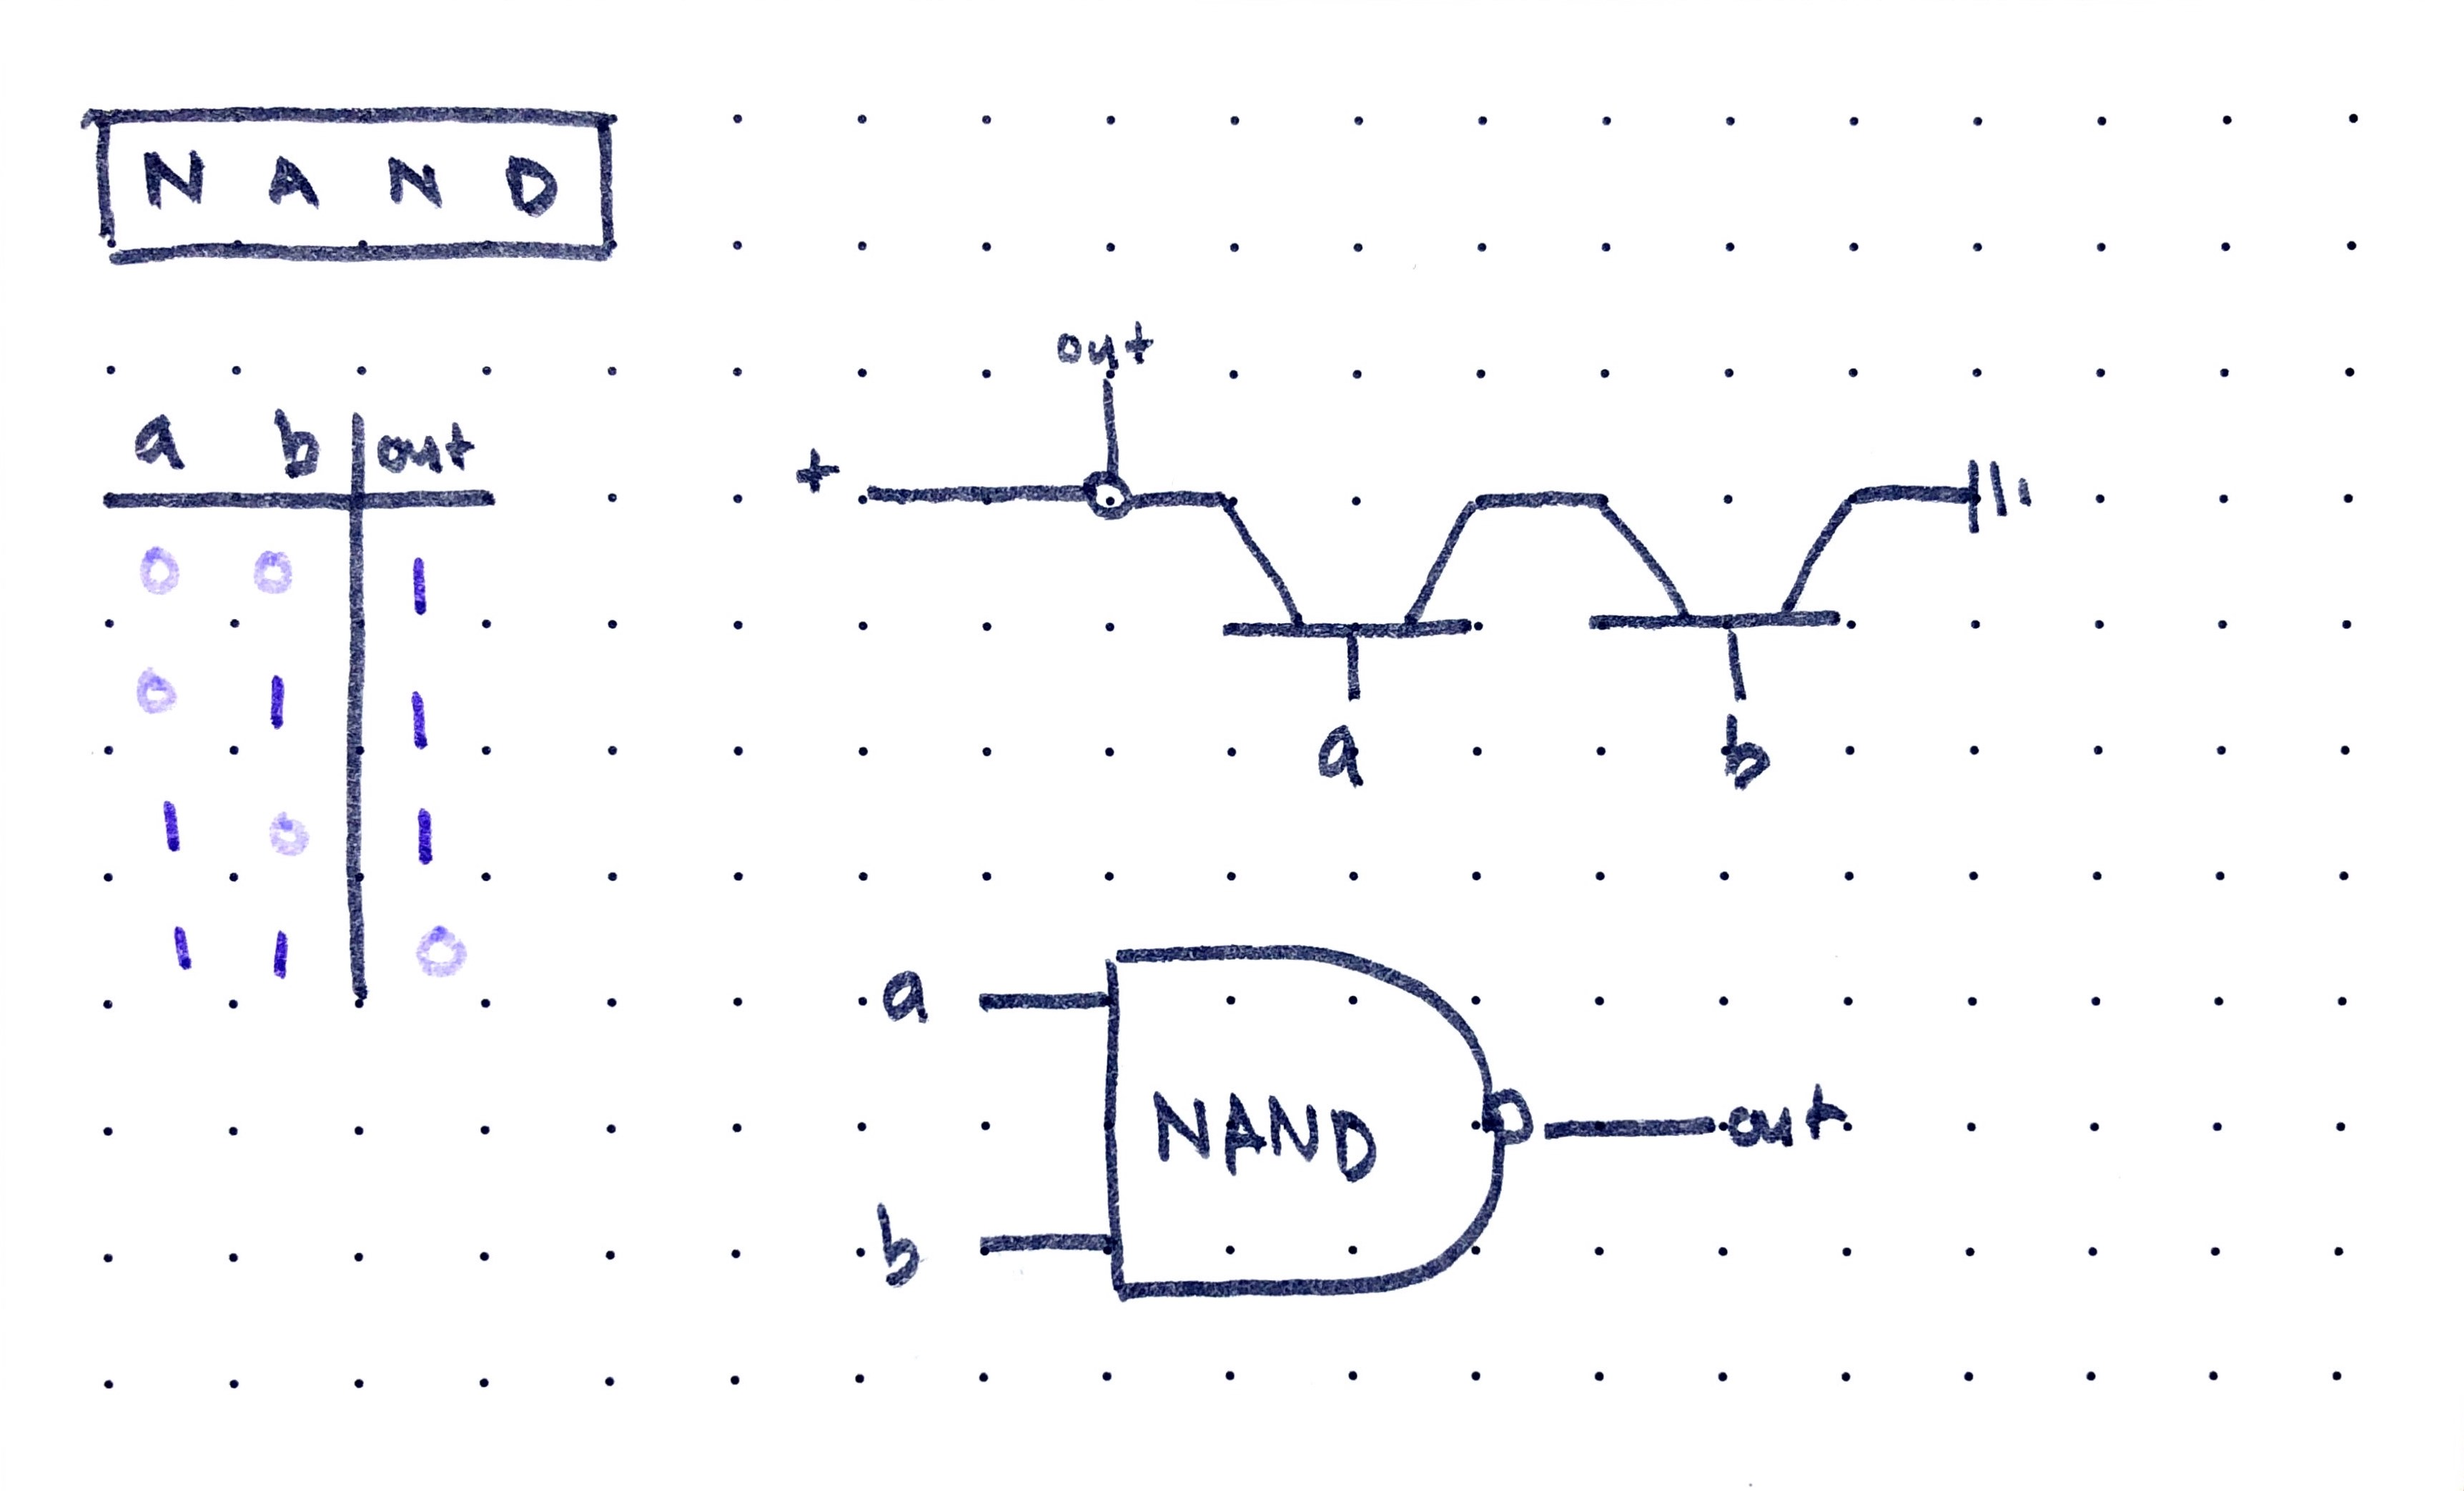 N A N D
a b out
0 0 1
0 1 1
1 0 1
1 1 0
out
+
a b
a
NAND
out
b